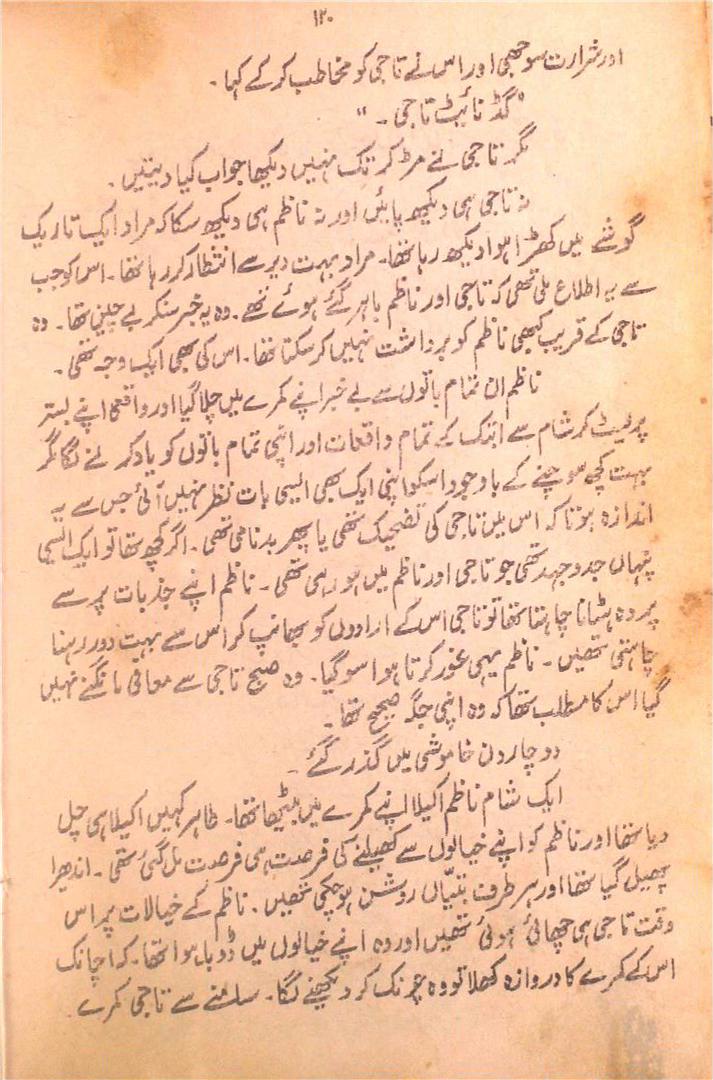 ۱۲۰
اور شرارت سوجھی اور اس نے تاجی کو مخاطب کر کے کہا۔
"گڈ نائیٹ تاجی۔"
مگر تاجی نے مڑ کر تک نہیں دیکھا جواب کیا دیتیں۔
نہ تاجی ہی دیکھ پائیں اور نہ ناظم ہی دیکھ سکا کہ مراد ایک تاریک
گوشے میں کھڑا ہوا دیکھ رہا تھا۔ مراد بہت دیر سے انتظار کر رہا تھا۔ اس کو جب
سے یہ اطلاع ملی تھی کہ تاجی اور ناظم باہر گئے ہوئے تھے۔ وہ یہ خبر سنکر بے چین تھا۔ وہ
تاجی کے قریب کبھی ناظم کو برداشت نہیں کر سکتا تھا۔ اس کی بھی ایک وجہ تھی۔
ناظم ان تمام باتوں سے بے خبر اپنے کمرے میں چلا گیا اور واقعی اپنے بستر
پر لیٹ کر شام سے ابتک کے تمام واقعات اور اپنی تمام باتوں کو یاد کرنے لگا مگر
بہت کچھ سوچنے کے باوجود اسکو اپنی ایک بھی ایسی بات نظر نہیں آئی جس سے یہ
اندازہ ہوتا کہ اس میں تاجی کی تضحیک تھی یا پھر بدنامی تھی۔ اگر کچھ تھا تو ایک ایسی
پنہاں جدوجہد تھی جو تاجی اور ناظم میں ہو رہی تھی۔ ناظم اپنے جذبات پر سے
پردہ ہٹانا چاہتا تھا تو تاجی اس کے ارادوں کو بھانپ کر اس سے بہت دور رہنا
چاہتی تھیں۔ ناظم یہی غور کرتا ہوا سو گیا۔ وہ صبح تاجی سے معافی مانگنے نہیں
گیا اس کا مطلب تھا کہ وہ اپنی جگہ صحیح تھا۔
دو چار دن خاموشی میں گذر گئے۔
ایک شام ناظم اکیلا اپنے کمرے میں بیٹھا تھا۔ طاہر کہیں اکیلا ہی چل
دیا تھا اور ناظم کو اپنے خیالوں سے کھیلنے کی فرصت ہی فرصت مل گئی تھی۔ اندھیرا
پھیل گیا تھا اور ہر طرف بتیّاں روشن ہو چکی تھیں۔ ناظم کے خیالات پر اس
وقت تاجی ہی چھائی ہوئی تھیں اور وہ اپنے خیالوں میں ڈوبا ہوا تھا۔ کہ اچانک
اس کے کمرے کا دروازہ کھلا تو وہ چونک کر دیکھنے لگا۔ سامنے سے تاجی کمرے